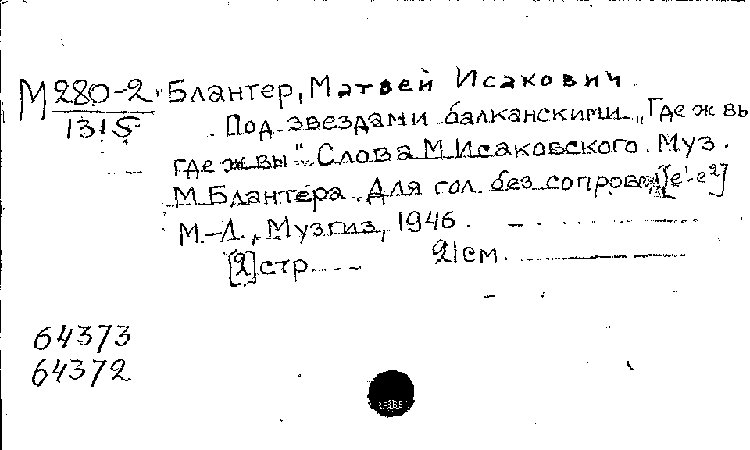 М 280-2 Блантер, Матвей Исакович
1315 Под звездами балканскими „Где ж вы
где ж вы“ Слова М. Исаковского. Муз.
М. Блантера. Для гол. без сопровод [e¹-e²]
М.-Л., Музгиз, 1946.
[2] стр. 21 см.
64373
64372